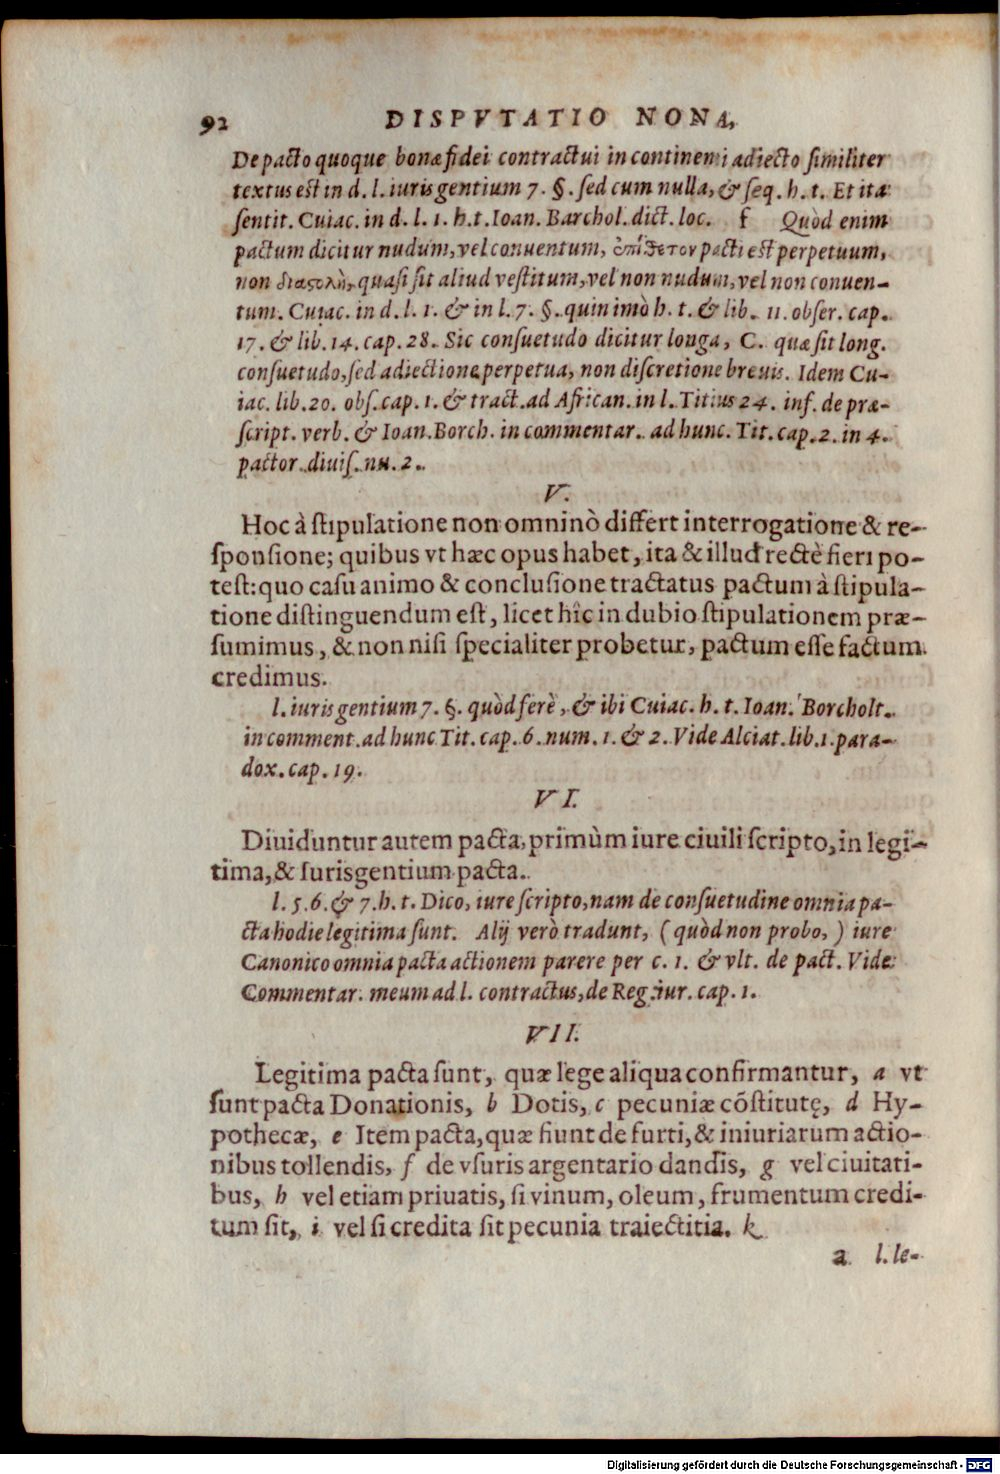 92 DISPVTATIO NONA,
De pacto quoque bonæ fidei contractui in continenti adiecto similiter
textus est in d. l. iuris gentium 7. §. sed cum nulla, & seq. h. t. Et ita
sentit. Cuiac. in d. l. 1. h. t. Ioan. Barchol. dict. loc. f Quòd enim
pactum dicitur nudum, vel conuentum, ἐπίθετον pacti est perpetuum,
non διαστολὴ, quasi sit aliud vestitum, vel non nudum, vel non conuen-
tum. Cuiac. in d. l. 1. & in l. 7. §. quinimò h. t. & lib. 11. obser. cap.
17. & lib. 14. cap. 28. Sic consuetudo dicitur longa, C. quæ sit long.
consuetudo, sed adiectione perpetua, non discretione breuis. Idem Cu-
iac. lib. 20. obs. cap. 1. & tract. ad African. in l. Titius 24. inf. de præ-
script. verb. & Ioan. Borch. in commentar. ad hunc. Tit. cap. 2. in 4.
pactor. diuis. nu. 2.
V.
Hoc à stipulatione non omninò differt interrogatione & re-
sponsione; quibus vt hæc opus habet, ita & illud rectè fieri po-
test: quo casu animo & conclusione tractatus pactum à stipula-
tione distinguendum est, licet hîc in dubio stipulationem præ-
sumimus, & non nisi specialiter probetur, pactum esse factum
credimus.
l. iuris gentium 7. §. quòd ferè, & ibi Cuiac. h. t. Ioan. Borcholt.
in comment. ad hunc Tit. cap. 6. num. 1. & 2. Vide Alciat. lib. 1. para-
dox. cap. 19.
VI.
Diuiduntur autem pacta, primùm iure ciuili scripto, in legi-
tima, & Iurisgentium pacta.
l. 5. 6. & 7. h. t. Dico, iure scripto, nam de consuetudine omnia pa-
cta hodie legitima sunt. Alij verò tradunt, (quòd non probo,) iure
Canonico omnia pacta actionem parere per c. 1. & vlt. de pact. Vide
Commentar. meum ad l. contractus, de Reg. iur. cap. 1.
VII.
Legitima pacta sunt, quæ lege aliqua confirmantur, a vt
sunt pacta Donationis, b Dotis, c pecuniæ cõstitutę, d Hy-
pothecæ, e Item pacta, quæ fiunt de furti, & iniuriarum actio-
nibus tollendis, f de vsuris argentario dandis, g vel ciuitati-
bus, h vel etiam priuatis, si vinum, oleum, frumentum credi-
tum sit, i vel si credita sit pecunia traiectitia. k
a l. le-
Digitalisierung gefördert durch die Deutsche Forschungsgemeinschaft - DFG